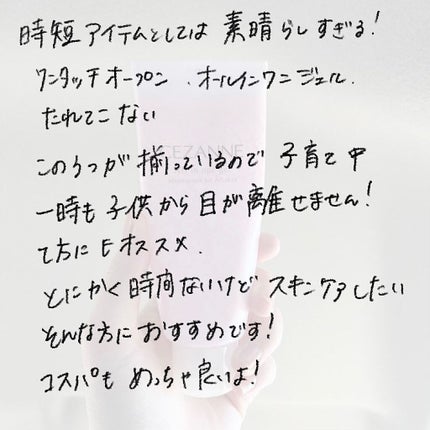 時短アイテムとしては素晴らしすぎる！
ワンタッチオープン、オールインワンジェル、
たれてこない
この3つが揃っているので子育て中
一時も子供から目が離せません！
て方にもオススメ。
とにかく時間ないけどスキンケアしたい
そんな方におすすめです！
コスパもめっちゃ良いよ！
CEZANNE